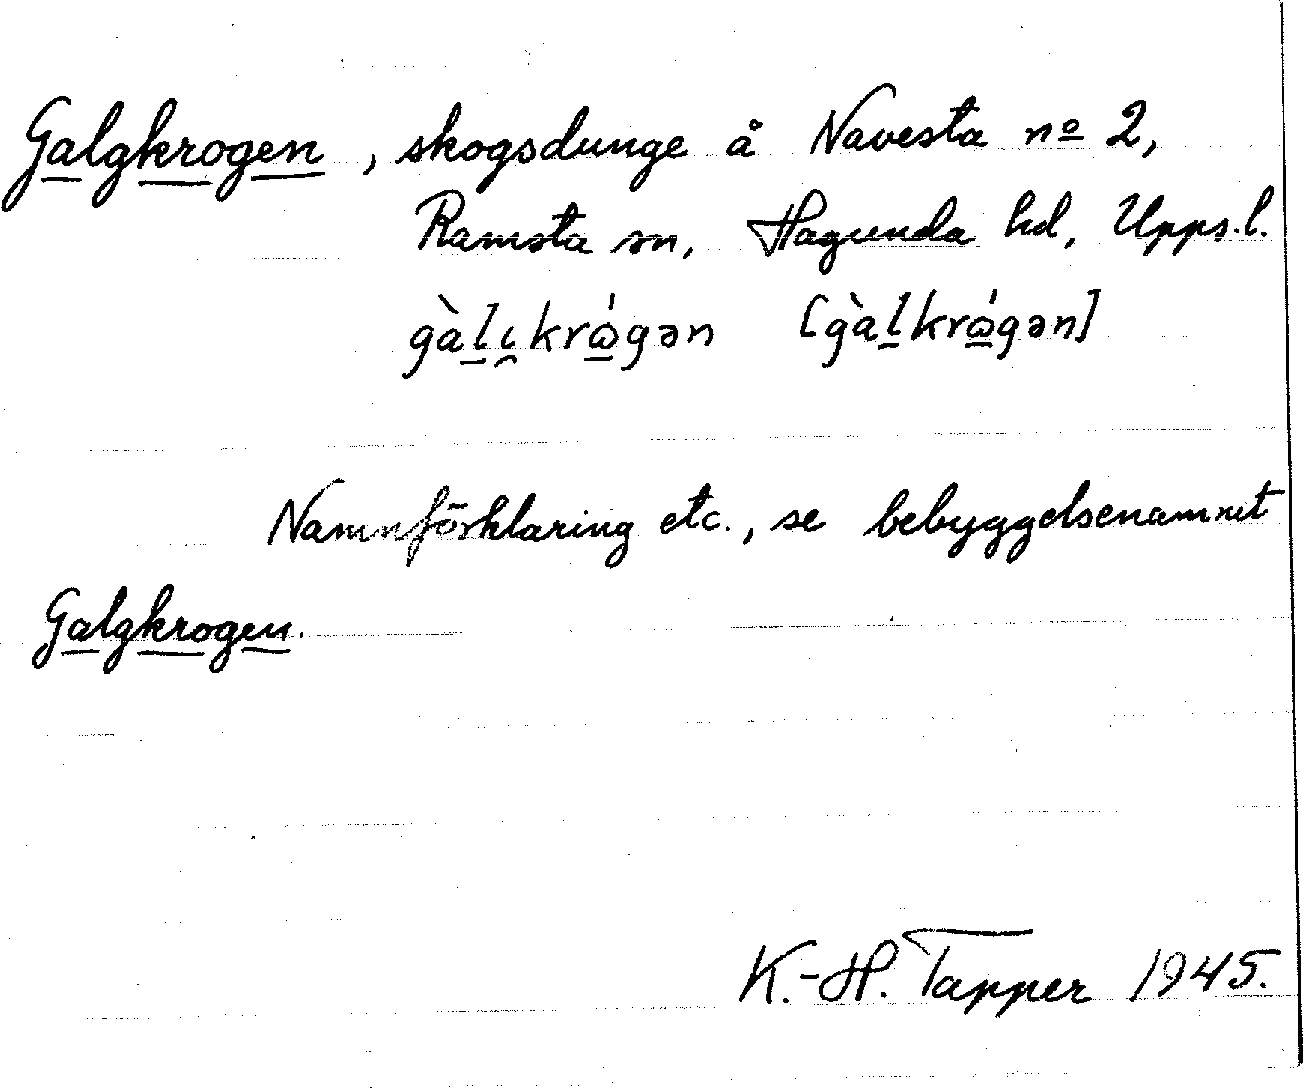 Galgkrogen, skogsdunge å Navesta nº 2,
Ramsta sn, Hagunda hd, Upps.l.
gàlıkrω̇́gən [gàlkrω̇́gən]
Namnförklaring etc., se bebyggelsenamnet
Galgkrogen.
K.-H. Tapper 1945.